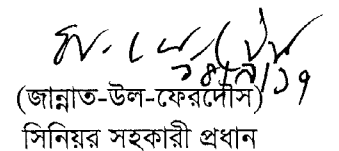 (জান্নাত-উল-ফেরদৌস)
সিনিয়র সহকারী প্রধান